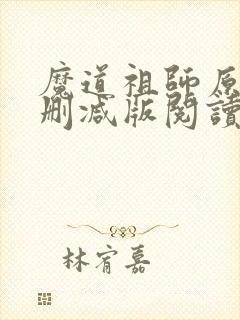 魔道祖師原
刪減版閱讀
林宥嘉